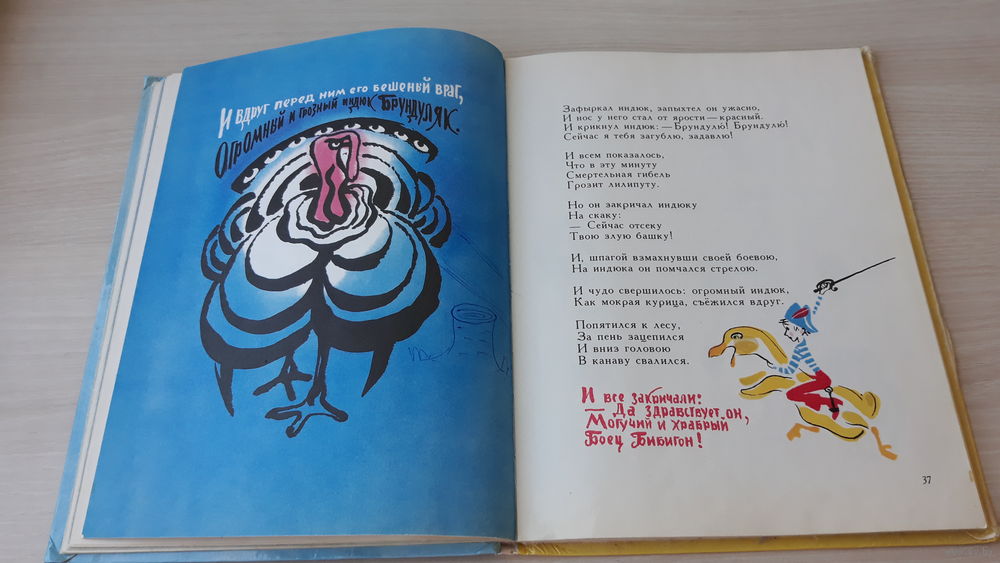 И вдруг перед ним его бешеный враг,
Огромный и грозный индюк Брундуляк.
Зафыркал индюк, запыхтел он ужасно,
И нос у него стал от ярости — красный.
И крикнул индюк: — Брундулю! Брундулю!
Сейчас я тебя загублю, задавлю!
И всем показалось,
Что в эту минуту
Смертельная гибель
Грозит лилипуту.
Но он закричал индюку
На скаку:
— Сейчас отсеку
Твою злую башку!
И, шпагой взмахнувши своей боевою,
На индюка он помчался стрелою.
И чудо свершилось: огромный индюк,
Как мокрая курица, съёжился вдруг.
Попятился к лесу,
За пень зацепился
И вниз головою
В канаву свалился.
И все закричали:
— Да здравствует он,
Могучий и храбрый
Боец Бибигон!
37